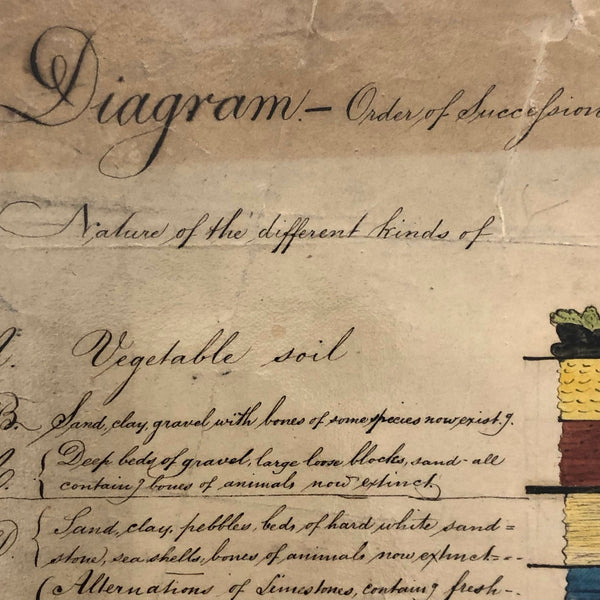 Diagram.— Order of Succession
Nature of the different kinds of
A. Vegetable soil
B. Sand, clay, gravel with bones of some species now exist.g.
C. { Deep beds of gravel, large loose blocks, sand - all
contain.g bones of animals now extinct
D. { Sand, clay, pebbles, beds, of hard white sand=
stone, sea shells, bones of animals now extinct=--
( Alternations of Limestones, contain.g fresh-.